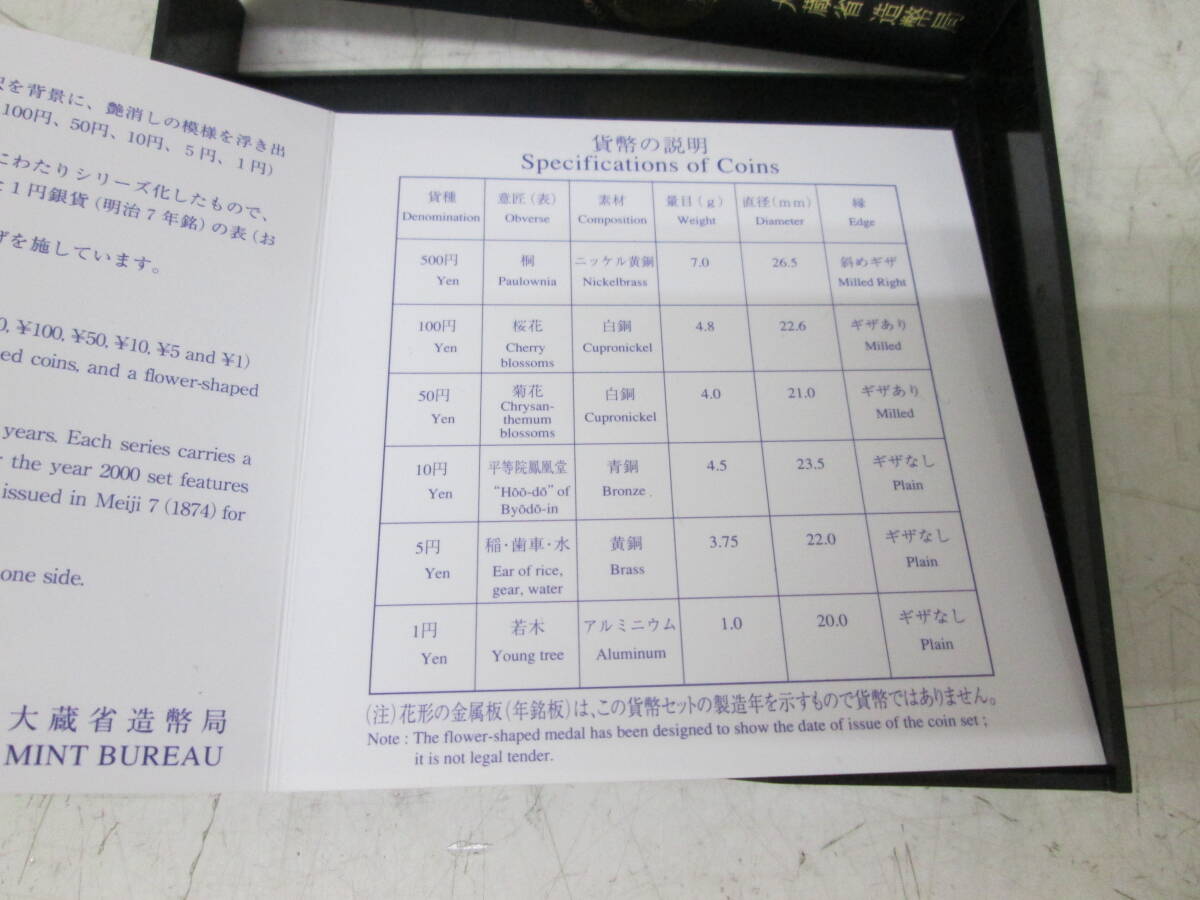 大蔵省 造幣局
を背景に、艶消しの模様を浮き出
100円、50円、10円、5円、1円)
にわたりシリーズ化したもので、
1円銀貨(明治7年銘)の表(お
ザを施しています。
¥100, ¥50, ¥10, ¥5 and ¥1)
coins, and a flower-shaped
years. Each series carries a
the year 2000 set features
issued in Meiji 7 (1874) for
one side.
大蔵省造幣局
MINT BUREAU
貨幣の説明
Specifications of Coins
貨種 意匠(表) 素材 量目(g) 直径(mm) 縁
Denomination Obverse Composition Weight Diameter Edge
500円 桐 ニッケル黄銅 7.0 26.5 斜めギザ
Yen Paulownia Nickelbrass Milled Right
100円 桜花 白銅 4.8 22.6 ギザあり
Yen Cherry Cupronickel Milled
blossoms
50円 菊花 白銅 4.0 21.0 ギザあり
Yen Chrysan- Cupronickel Milled
themum
blossoms
10円 平等院鳳凰堂 青銅 4.5 23.5 ギザなし
Yen "Hōō-dō" of Bronze Plain
Byōdō-in
5円 稲・歯車・水 黄銅 3.75 22.0 ギザなし
Yen Ear of rice, Brass Plain
gear, water
1円 若木 アルミニウム 1.0 20.0 ギザなし
Yen Young tree Aluminum Plain
(注)花形の金属板(年銘板)は、この貨幣セットの製造年を示すもので貨幣ではありません。
Note : The flower-shaped medal has been designed to show the date of issue of the coin set ;
it is not legal tender.